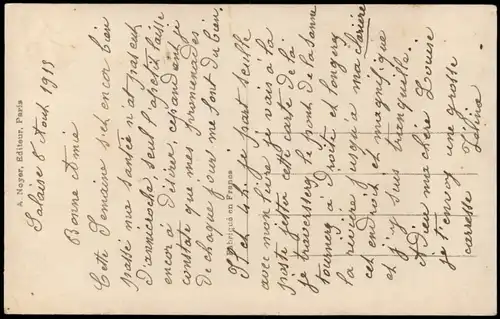 A. Noyer, Editeur, Paris
Fabriqué en France
Salaise 8 Aout 1913
Bonne Amie
Cette Semaine s'est encor bien
passé ma santée n'at pas eut
d'anicroche seul l'apetit laisse
encor à désirer, cependant je
constate que mes promenades
de chaque jour me font du bien.
Il est 4h. je part seulle
avec mon livre je vais à la
poste jeter cette carte de là
je traverserez le pont de la Sanne
tournerez à droite et longerez
la rivière jusqu'à ma clairière
cet endroit est magnifique
et j'y suis tranquille.
Adieu ma chère Louise
je t'envoy une grosse
caresse